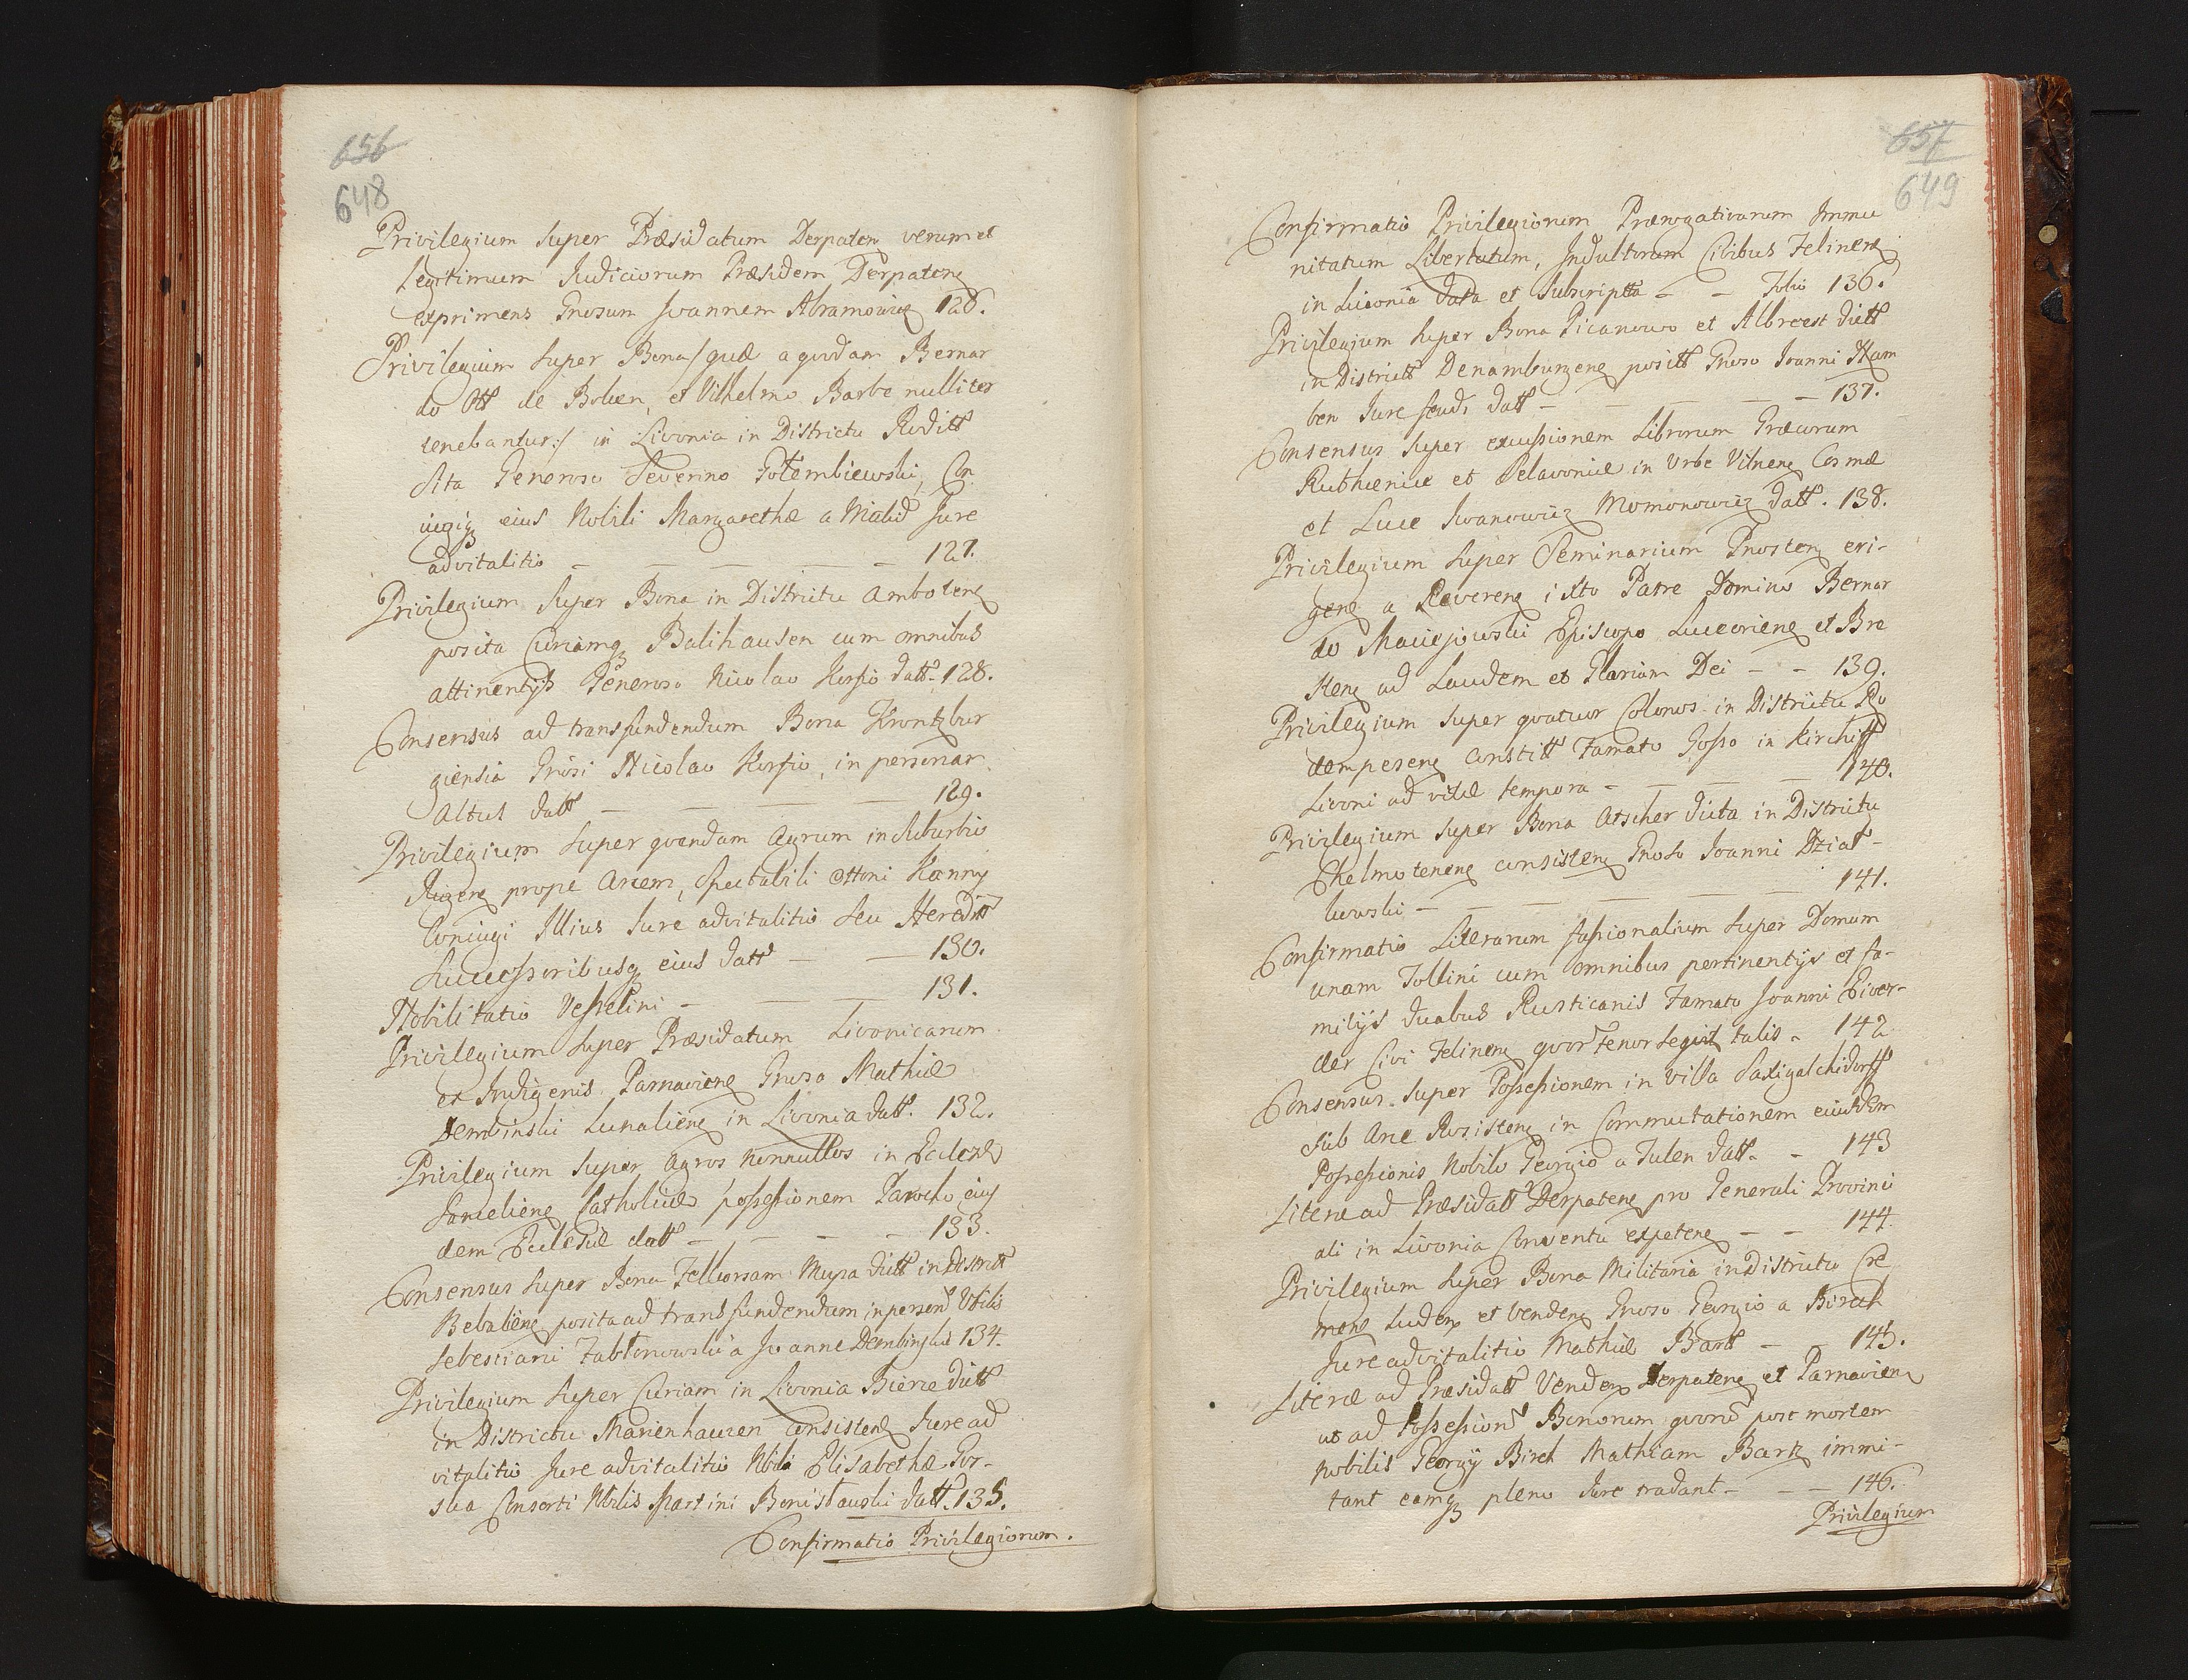 656
648
Privilegium super Præsidatum Derpaten verum et
legitimum Judiciorum Præsidem Derpatens
exprimens Gnosum Joannem Abramowicz 126.
Privilegium super Bona /quæ a quodam Bernar
do Ott de Bolien, et Vilhelmo Barbe nulliter
tenebantur:/ in Livonia in Districtu Roditt
sita Generoso Severino Gołembiewski, Con
iugiq eius Nobili Margarethæ a Malid Jure
advitalitio - - - - 127.
Privilegium super Bona in Districtu Amboten
posita Curiamq Balihausen cum omnibus
attinentijs Generoso Nicolao Korfio datt. 128.
Consensus ad transfundendum Bona Krontzbur
giensia Gnosi Nicolao Korfio, in personam
altus datt - - - - 129.
Privilegium super quendam Agrum in Suburbio
Rigens prope Arcem, Spectabili Ottoni Kanny
Coniugi Illius Jure advitalitio seu Heredit
Successoribusq eius datt - - 130.
Nobilitatio Vesselini - - - 131.
Privilegium super Præsidatum Livonicarum
et Indigenis Parnaviens Gnoso Mathiæ
Dembinski Lunaliens in Livonia datt. 132.
Privilegium super Agros nonnullos in Eccleze
Sameliens Catholicæ possessionem Parocho eius
dem Ecclesiæ datt - - - - 133.
Consensus super Bona Felkorsam Muysa dictt in Districtt
Bebaliens posita ad transfundendum in personã Nbilis
Sebestiani Jabłonowski a Joanne Dembinskio 134.
Privilegium super Curiam in Livonia Bierze dictt
in Districtu Marienhauzen consistens Jure ad
vitalitio Jure advitalitio Nbili Elisabethæ Gor-
ska Consorti Nbilis Martini Bonisławski datt. 135.
Confirmatio Privilegiorum.
657
649
Confirmatio Privilegiorum Prærogativarum Immu
nitatum Libertatum, Indultorum Civibus Felinens
in Livonia data et subscripta - - Folio 136.
Privilegium super Bona Picanowo et Albrecst dictt
in Districtt Denamburgens positt Gnoso Joanni Ham
ben Jure feudi datt - - - - 137.
Consensus super excussionem Librorum Græcorum
Rutheniæ et Sclavoniæ in Urbe Vilnens Cosmæ
et Lucæ Iwanowicz Momonowicz datt. 138.
Privilegium super Seminarium Gnosten eri-
gens a Reverens isto Patre Domino Bernar
do Maciejowski Episcopo Luceoriens et Bre
stens ad Laudem et Gloriam Dei - - 139.
Privilegium super quatuor Colonos in Districtu Ro
dempesens constitt Famato Josso in Kirchiff
Livoni ad vitæ tempora - - - 140.
Privilegium super Bona Atscher dicta in Districtu
Ehelmotenens consistens Gnoso Joanni Dział-
kowski - - - - - 141.
Confirmatio Literarum fassionalium super Domum
unam Tollini cum omnibus pertinentijs et fa-
milijs duabus Rusticanis Famato Joanni Eiver-
der Civi Felinens quor tenor sequit talis - 142
Consensus super Possessionem in villa Saxigalchidorff
sub Arce Rosistens in Commutationem eiusdem
Possessionis Nobile Georgio a Tulen datt. - 143
Literæ ad Præsidatt Derpatens pro Generali Provinci
ali in Livonia Conventu expetens - - 144.
Privilegium super Bona Militaria in Districtu Cre
mens Ludens et Vendens Gnoso Georgio a Birch
Jure advitalitio Mathiæ Bartt - - 145.
Literæ ad Præsidatt Vendens Derpatens et Parnaviens
ut ad Possessionẽ Bonorum quorũ post mortem
Nobilis Georgij Birch Mathiam Bartz immi-
tant eamq pleno Jure tradant - - - 146.
Privilegium